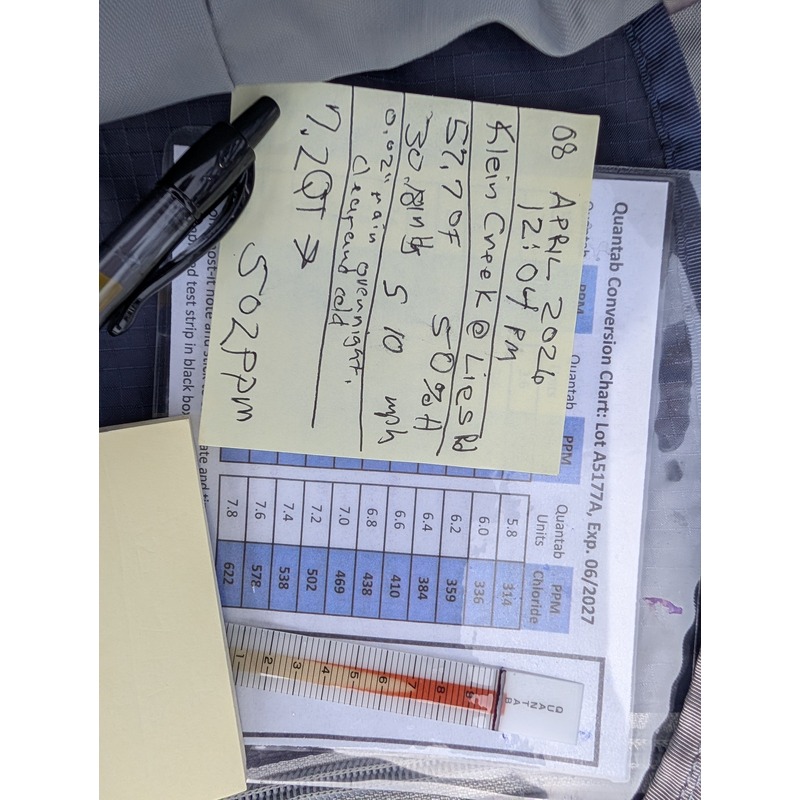 08 APRIL 2026
12:04 PM
Klein Creek @ Lies Rd
50%H
S 10 mph
0.02" rain overnight.
Clear and cold
7.2QT →
502ppm
Quantab Conversion Chart: Lot A5177A, Exp. 06/2027
PPM
Quantab PPM
Quantab Units PPM Chloride
5.8 314
6.0 336
6.2 359
6.4 384
6.6 410
6.8 438
7.0 469
7.2 502
7.4 538
7.6 578
7.8 622
post-it note and
test strip in black box
QUANTAB
1 2 3 4 5 6 7 8 9